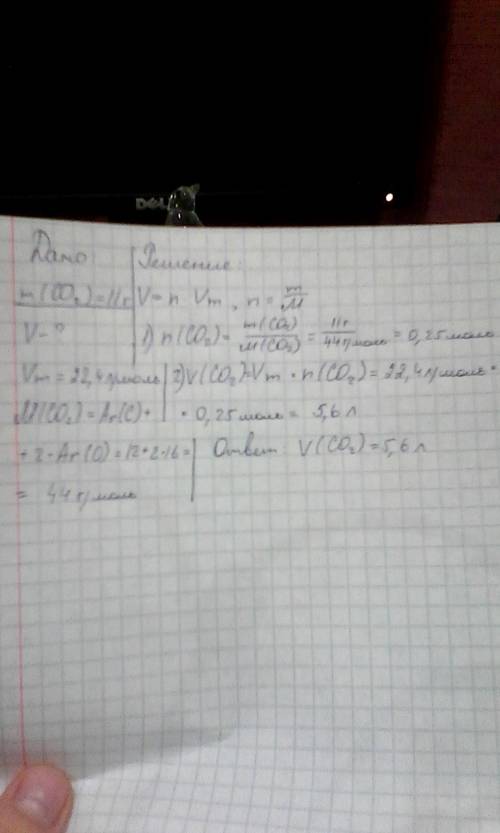 DELL
Дано
m(CO₂)=11г
V-?
Vm=22,4л/моль
M(CO₂)=Ar(C)+
+2·Ar(O)=12+2·16=
= 44 г/моль
Решение:
V=n Vm, n=m/M
1) n(CO₂)=m(CO₂)/M(CO₂)=11г/44г/моль=0,25моль
2)V(CO₂)=Vm·n(CO₂)=22,4л/моль·
·0,25моль=5,6л
Ответ: V(CO₂)=5,6л